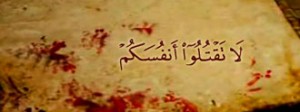 لَا تَقْتُلُوٓا۟ أَنفُسَكُمْ